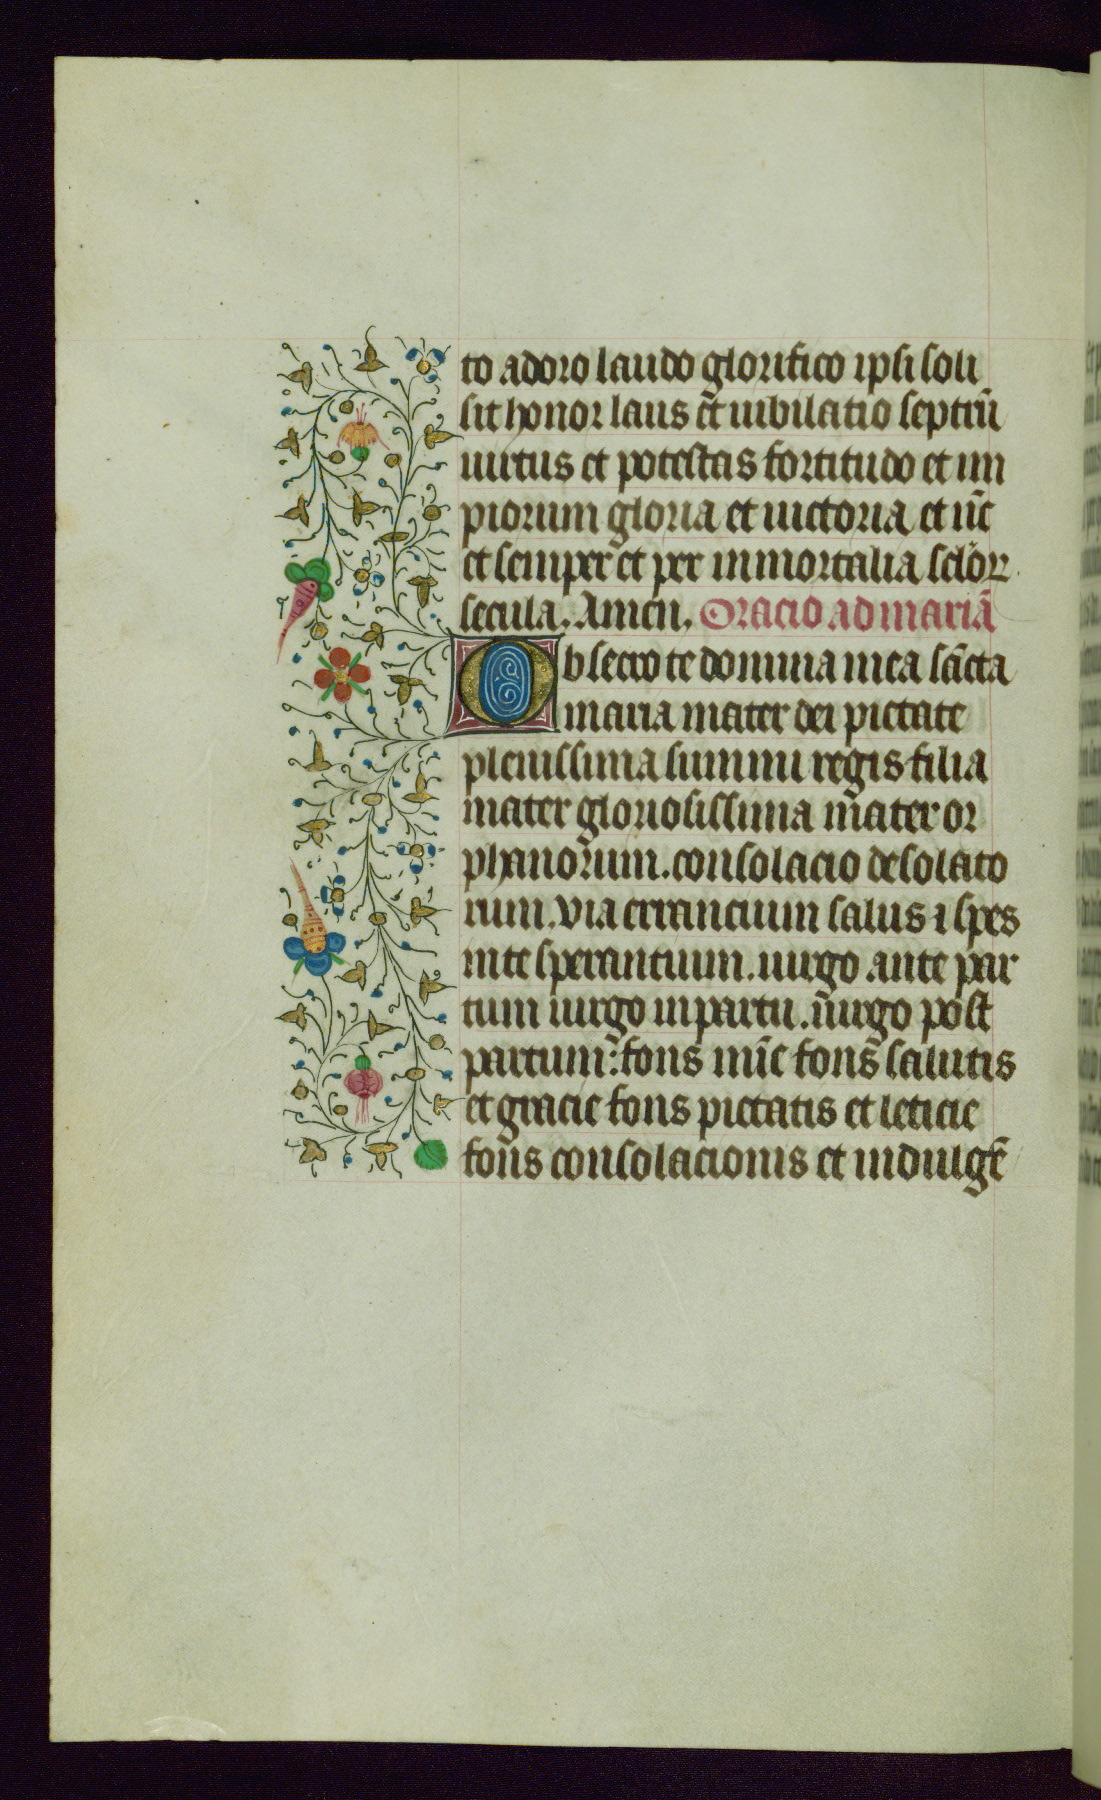 to adoro laudo glorifico ipsi soli
sit honor laus et iubilatio septrū
uirtus et potestas fortitudo et im
piorum gloria et uictoria et nūc
et semper et per inmortalia sclōꝝ
secula. Amen. Oracio ad mariā
Obsecro te domina mea sācta
maria mater dei pietate
plenissima summi regis filia
mater gloriosissima mater or
phanorum. consolacio desolato
rum. via errancium salus ⁊ spes
in te sperantium. uirgo ante par
tum uirgo in partu. uirgo post
partum: fons mīe fons salutis
et gracie fons pietatis et leticie
fons consolacionis et indulgē